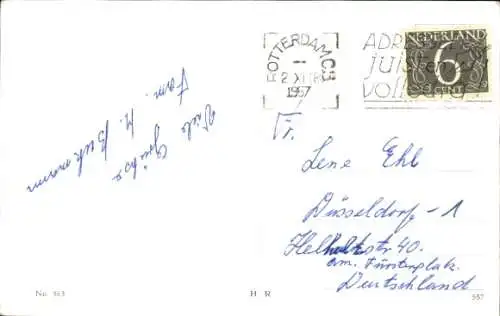 ROTTERDAM C.S
2 XI 18
1957
ADRES
juist
Volledig
NEDERLAND
6
CENT
Viele Grüße
Fam. H. Bukmann
Fr.
Lene Ehl
Düsseldorf-1
str 40.
am. Fürstenplatz.
Deutschland
No. 163
H R
557